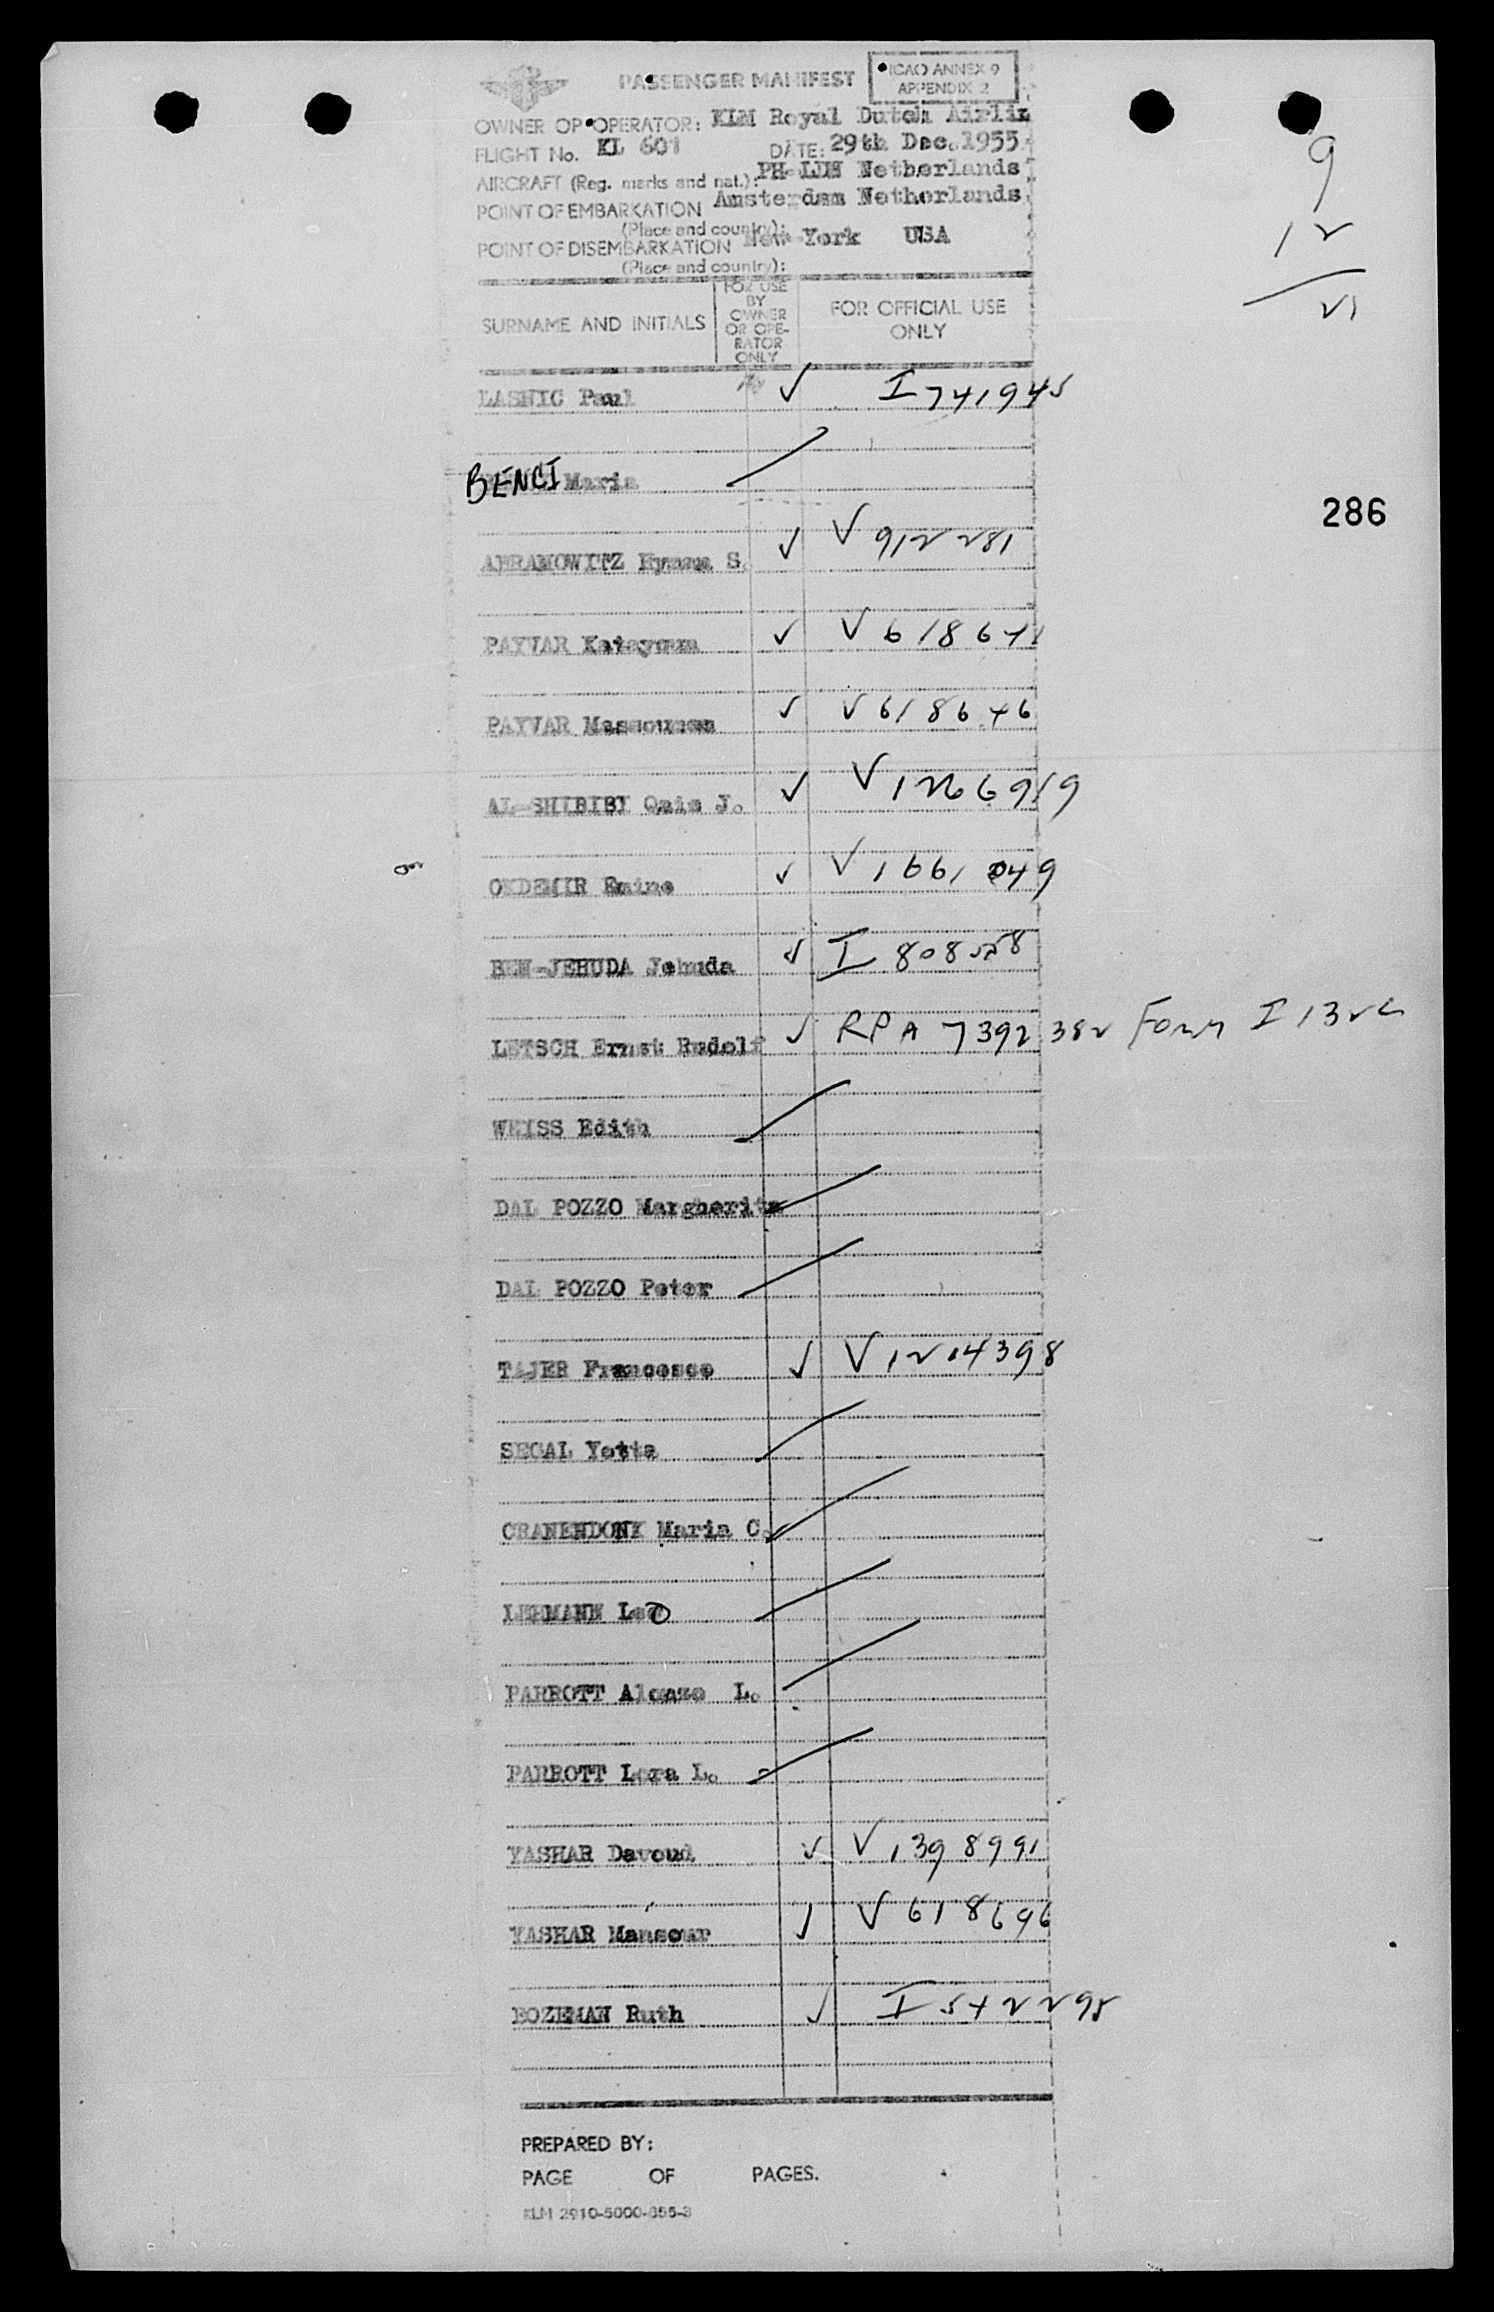 PASSENGER MANIFEST
ICAO ANNEX 9
APPENDIX 2
OWNER OP OPERATOR: KLM Royal Dutch Airlin
FLIGHT No. KL 601 DATE: 29th Dec. 1955
AIRCRAFT (Reg. marks and nat.): Netherlands
POINT OF EMBARKATION Amsterdam Netherlands
(Place and country):
POINT OF DISEMBARKATION New York USA
(Place and country):
9
12
21
SURNAME AND INITIALS
FOR USE
BY
OWNER
OR OPE-
RATOR
ONLY
FOR OFFICIAL USE
ONLY
LASNIC Paul ✓ I 741945
BENCI Maria
286
ABRAMOWITZ Hyman S. ✓ V 912281
PAYVAR Katayoun ✓ V 618641
PAYVAR ✓ V 618646
AL-SHIBIBI Qais J. ✓ V 1266919
OKDEMIR Emine ✓ V 1661049
BEN-JEHUDA Jehuda ✓ I 808558
LETSCH Ernst Rudolf ✓ RPA 7392382 Form I 132c
WEISS Edith
DAL POZZO Margherita
DAL POZZO Peter
TAJER Francesco ✓ V 1204398
SEGAL Yetta
CRANENDONK Maria C.
LEHMANN Leo
PARROTT Alonzo L.
PARROTT Lora L.
YASHAR Davoud ✓ V 1398991
YASHAR Mansour ✓ V 618696
BOZEMAN Ruth ✓ I 542295
PREPARED BY:
PAGE OF PAGES.
KLM 2910-5000-855-3